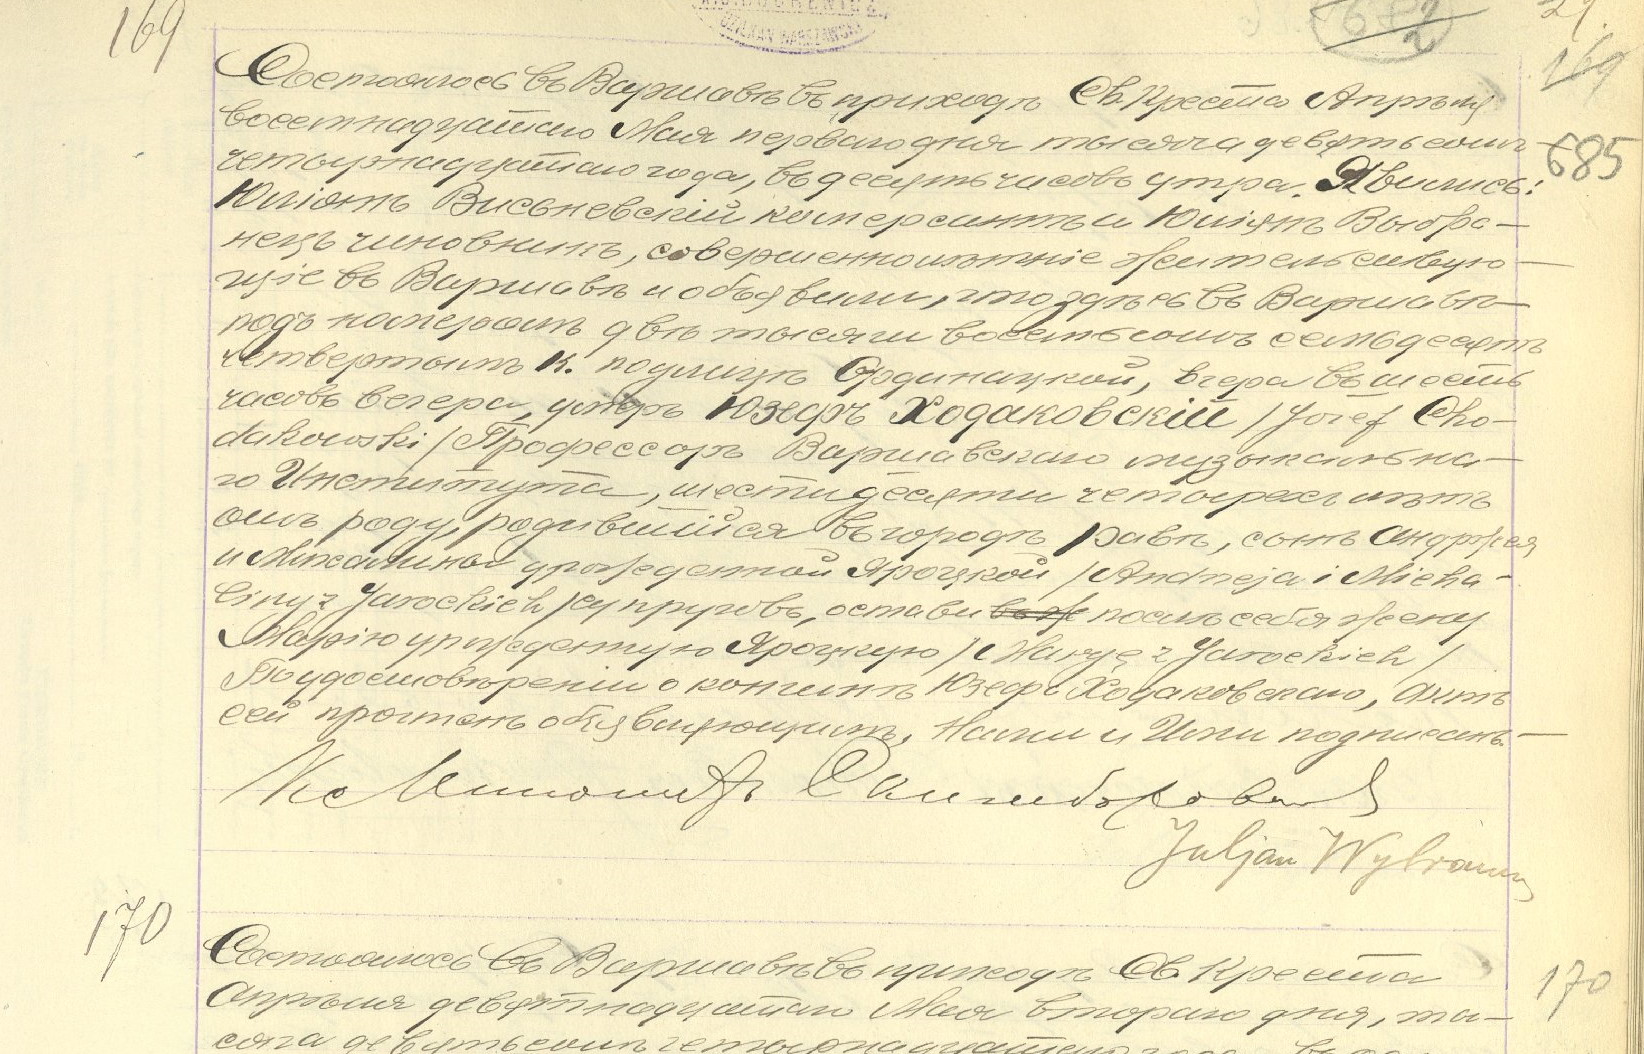 169
685
169
Состоялось въ Варшавѣ въ приходѣ Св. Креста Апрѣля
восемнадцатаго Мая перваго дня тысяча девятьсотъ
четырнадцатаго года, въ десять часовъ утра. Явились:
Юліянъ Висьневскій коммерсантъ и Юліянъ Выбра-
нецъ чиновникъ, совершеннолѣтніе жительствую-
щіе въ Варшавѣ и объявили, что здѣсь въ Варшавѣ
подъ номеромъ двѣ тысячи восемьсотъ семьдесятъ
четвертымъ К. по улицѣ Ординацкой, вчера въ шесть
часовъ вечера, умеръ Юзефъ Ходаковскій /Józef Cho-
dakowski/ Профессоръ Варшавскаго музыкальна-
го Института, шестидесяти четырехъ лѣтъ
отъ роду, родившійся въ городѣ Равѣ, сынъ Андржея
и Михалины урожденной Яроцкой /Andrzeja i Micha-
liny z Jarockich/ супруговъ, остави послѣ себя жену
Марію урожденную Яроцкую /Maryę z Jarockich/
По удостовѣреніи о кончинѣ Юзефа Ходаковскаго, Актъ
сей прочтенъ объявляющимъ, Нами и Ими подписанъ.
Julian Wybraniec
170
170
Состоялось въ Варшавѣ въ приходѣ Св. Креста
Апрѣля девятнадцатаго Мая второго дня, ты-
сяча девятьсотъ четырнадцатаго года